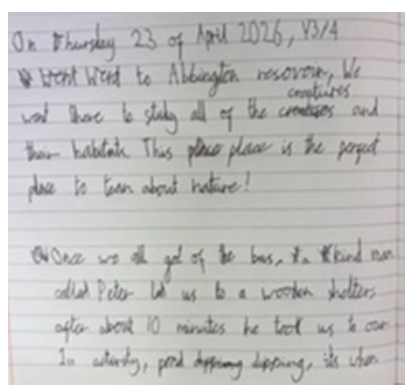 On Thursday 23 of April 2026, Y3/4
Went Went to Abbington resovour, We
creatures
went there to study all of the creatures and
their habitats. This place place is the perfect
place to learn about nature!
Once we all got of the bus, a kind man
called Peter led us to a wooden shelter,
after about 10 minutes he took us to our
1st activity, pond dipping dipping, its when